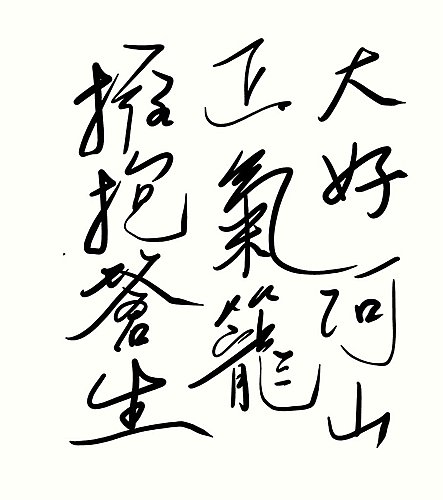 大好河山
正氣籠
擁抱蒼生